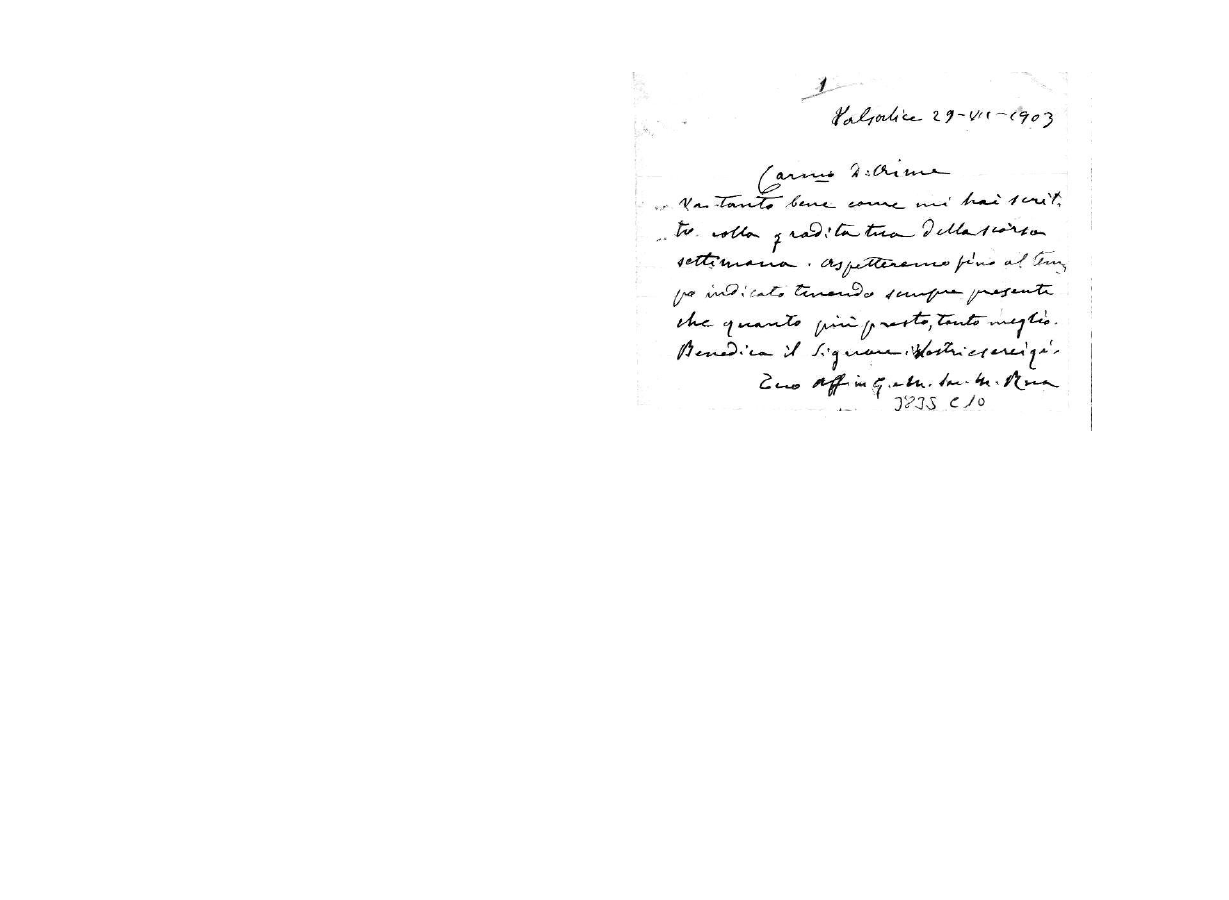 1
Valsalice 29-VII-1903
Carmo D. Rime
Va tanto bene come mi hai scrit-
to colla gradita tua della scorsa
settimana. Aspetteremo fino al tem-
po indicato tenendo sempre presente
che quanto più presto, tanto meglio.
Benedica il Signore i Vostri esercizi.
Tuo aff in G. e M. Sac. M. Rua
3835 C10